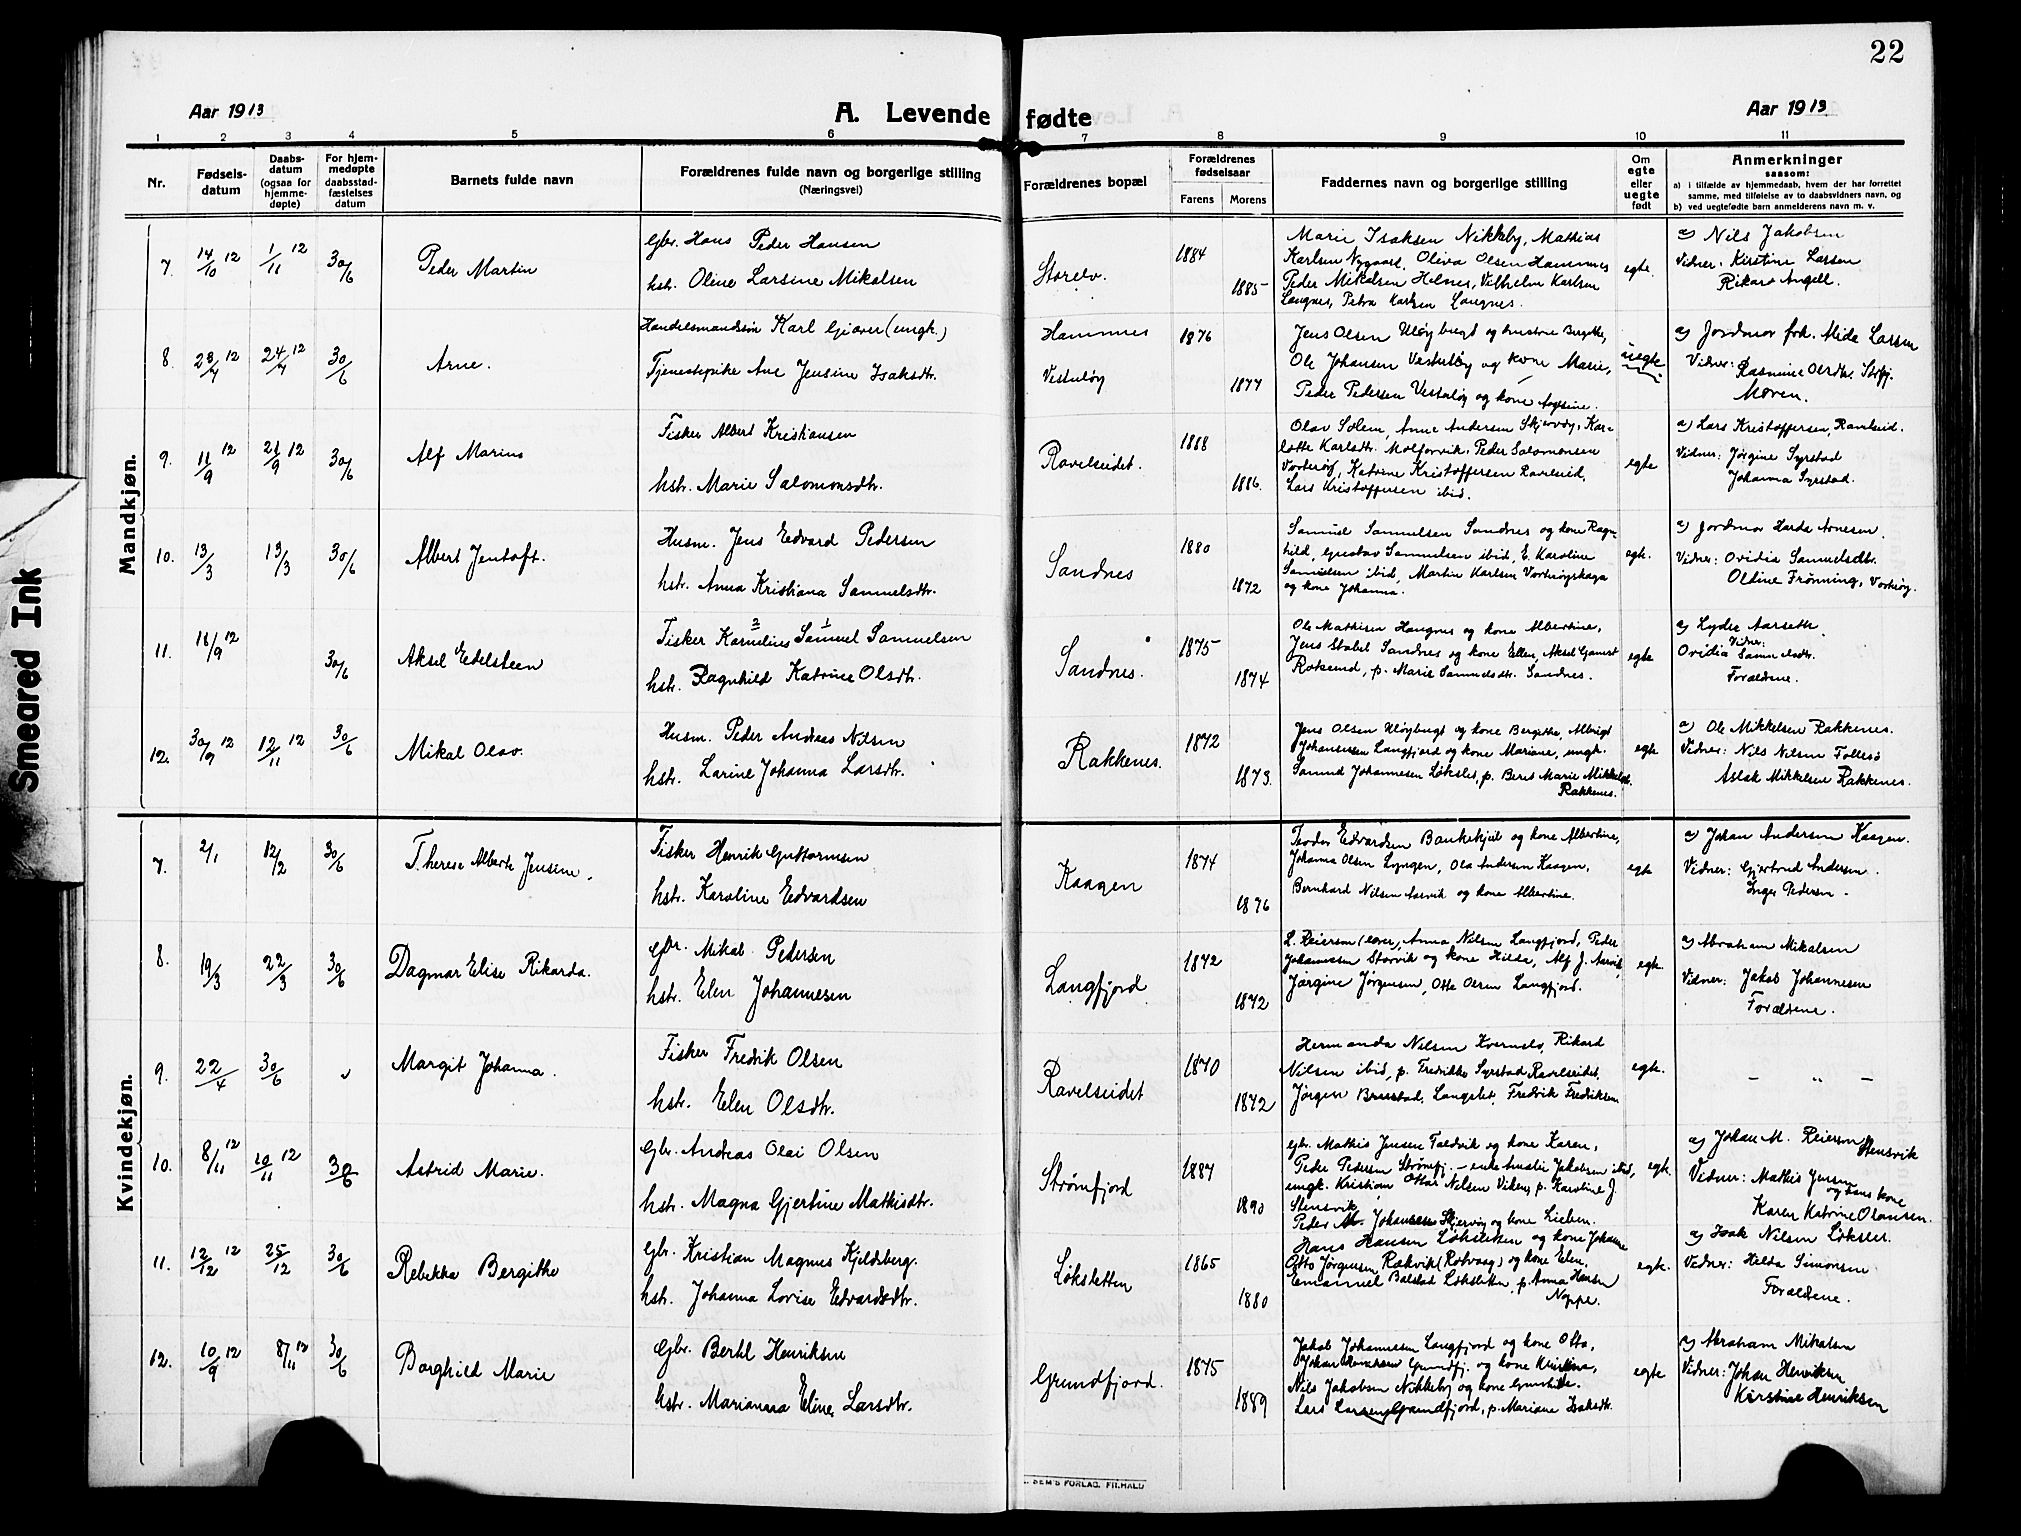 22
Aar 1913
A. Levende fødte
Aar 1913
1 2 3 4 5 6 7 8 9 10 11
Nr.
Fødsels-
datum
Daabs-
datum
(ogsaa for
hjemme-
døpte)
For hjem-
medøpte
daabsstad-
fæstelses
datum
Barnets fulde navn
Forældrenes fulde navn og borgerlige stilling
(Næringsvei)
Forældrenes bopæl
Forældrenes
fødselsaar
Farens Morens
Faddernes navn og borgerlige stilling
Om
egte
eller
uegte
født
Anmerkninger
saasom:
a) i tilfælde av hjemmedaab, hvem der har forrettet
samme, med tilføielse av to daabsvidners navn, og
b) ved uegtefødte barn anmelderens navn m. v.
Mandkjøn.
7. 14/10 12 1/11 12 30/6 Peder Martin
Gbr. Hans Peder Hansen
hstr. Oline Larsine Mikalsen
Storelv. 1884 1885
Marie Isaksen Nikkeby, Mathias
Karlsen Nygaard, Oliva Olsen Hamnnes
Peder Mikalsen Helnes, Vilhelm Karlsen
Langnes, Petra Karlsen Langnes.
egte.
a) Nils Jakobsen
Vidner: Kirstine Larsen
Rikard Angell.
8. 23/7 12 24/7 12 30/6 Arne.
Handelsmandsøn Karl Giæver (ungk.)
Tjenestepike Ane Jensine Isaksdtr.
Hamnnes
Vesterløy 1876 1877
Jens Olsen Uløybugt og hustru Bergitte,
Ole Johansen Vesterløy og kone Marie,
Peder Pedersen Vesterløy og kone
uegte
a) Jordmor frk. Mida Larsen
Vidner: Rasmine Olsdtr. Strfj.
Moren.
9. 11/9 12 21/9 12 30/6 Alf Marius
Fisker Albert Kristiansen
hstr. Marie Salomonsdtr.
Ravelseidet. 1888 1886.
Olav Solem, Anne Andersen Skjervøy, Kar-
lotte Karlsdtr. Molforvik, Peder Salomonsen
Vorterøy, Katrine Kristoffersen Ravleid,
Lars Kristoffersen ibid.
egte
a) Lars Kristoffersen, Ravleid.
Vidner: Jørgine Syrstad
Johanna Syrstad.
10. 13/3 13/3 30/6 Albert Jentoft.
Husm. Jens Edvard Pedersen
hstr. Anna Kristiana Samuelsdtr.
Sandnes 1880 1872
Samuel Samuelsen Sandnes og kone Ragn-
hild, Gustav Samuelsen ibid, E. Karoline
Samuelsen ibid, Martin Karlsen Vorterøyskaga
og kone Johanna.
egte.
a) Jordmor Harda Arnesen.
Vidner: Ovidia Samuelsdtr.
Oldine Frønning, Vorterøy.
11. 18/9 12 30/6 Aksel Edelsteen
Fisker Kornelius 2 Samuel 1 Samuelsen
hstr. Ragnhild Katrine Olsdtr.
Sandnes. 1875 1874
Ole Mathisen Haugnes og kone Albertine,
Jens Stabel Sandnes og kone Ellen, Aksel Gamst
Rotsund, p. Marie Samuelsdtr. Sandnes.
egte
a) Lyder Aarseth
Vidner:
Ovidia Samuelsdtr.
Forældrene.
12. 30/9 12 12/11 12 30/6 Mikal Olav.
Husm. Peder Andreas Nilsen
hstr. Larine Johanna Larsdtr.
Rakkenes. 1872 1873.
Jens Olsen Uløybugt og kone Bergithe, Albrigt
Johannesen Langfjord og kone Mariane, ungk.
Samuel Johannesen Løkslet, p. Beret Marie Mikkelsdtr.
Rakkenes.
egte
a) Ole Mikkelsen Rakkenes.
Vidner: Nils Nilsen Follesø
Aslak Mikkelsen Rakkenes.
Kvindekjøn.
7. 2/1 12/2 30/6 Therese Alberte Jensine.
Fisker Henrik Guttormsen
hstr. Karoline Edvardsen
Kaagen 1874 1876
Teodor Edvardsen Bankekjeil og kone Albertine,
Johanna Olsen Lyngen, Ola Andersen Kaagen,
Bernhard Nilsen Aarvik og kone Albertine.
egte
a) Johan Andersen Kaagen.
Vidner: Gjertrud Andersen
Inger Pedersen
8. 19/3 22/3 30/6 Dagmar Elise Rikarda.
Gbr. Mikal Pedersen
hstr. Elen Johannesen
Langfjord 1872 1872
L. Reiersen (lærer), Anna Nilsen Langfjord, Peder
Johannesen Storvik og kone Hilda, Alf J. Aarvik,
Jørgine Jørgensen, Otto Olsen Langfjord.
egte.
a) Abraham Mikalsen
Vidner: Jakob Johannesen
Forældrene.
9. 22/4 30/6 Margit Johanna.
Fisker Fredrik Olsen
hstr. Elen Olsdtr.
Ravelseidet 1870 1872
Hermanda Nilsen Kvernslo, Rikard
Nilsen ibid, p. Fredrikke Syrstad Ravelseidet,
Jørgen Brestad, Langslet, Fredrik Fredriksen
egte.
— „ —
10. 8/11 12 10/11 12 30/6 Astrid Marie.
Gbr. Andreas Olai Olsen
hstr. Magna Gjertine Mathisdtr.
Strømfjord 1887 1890
Gbr. Mathis Jensen Taldvik og kone Karen,
Peder Pedersen Strømfj. – enke Amalie Jakobsen ibid,
ungk. Kristian Ottar Nilsen Viken, p. Karoline J.
Stensvik,
Peder M. Johansen Skjervøy og kone Lieben.
egte.
a) Johan M. Reiersen Stensvik
Vidner: Mathis Jensen
og hans kone
Karen Katrine Olausen.
11. 12/12 12 25/12 30/6 Rebekka Bergithe
Gbr. Kristian Magnus Kjeldsberg.
hstr. Johanna Lovise Edvardsdtr.
Løksletten 1865 1880
Hans Hansen Løksletten og kone Johanne
Otto Jørgensen Rakvik (Rotvaag) og kone Elen,
Emanuel Balstad Løksletten, p. Anna Hansen
Noppe.
egte.
a) Isak Nilsen Løkslet.
Vidner: Hilda Simonsen
Forældrene.
12. 10/9 12 8/11 12 30/6 Borghild Marie
Gbr. Bertel Henriksen
hstr. Marianna Eline Larsdtr.
Grundfjord. 1875 1889
Jakob Johannesen Langfjord og kone Otta,
Johan Henriksen Grundfj. og kone Kristina,
Nils Jakobsen Nikkeby og kone Gunhilde.
Lars Larsen Grundfjord, p. Mariane Isaksdtr.
egte
a) Abraham Mikalsen
Vidner: Johan Henriksen
Kirstine Henriksen
SEM'S FORLAG. FR.HALD
Smeared Ink